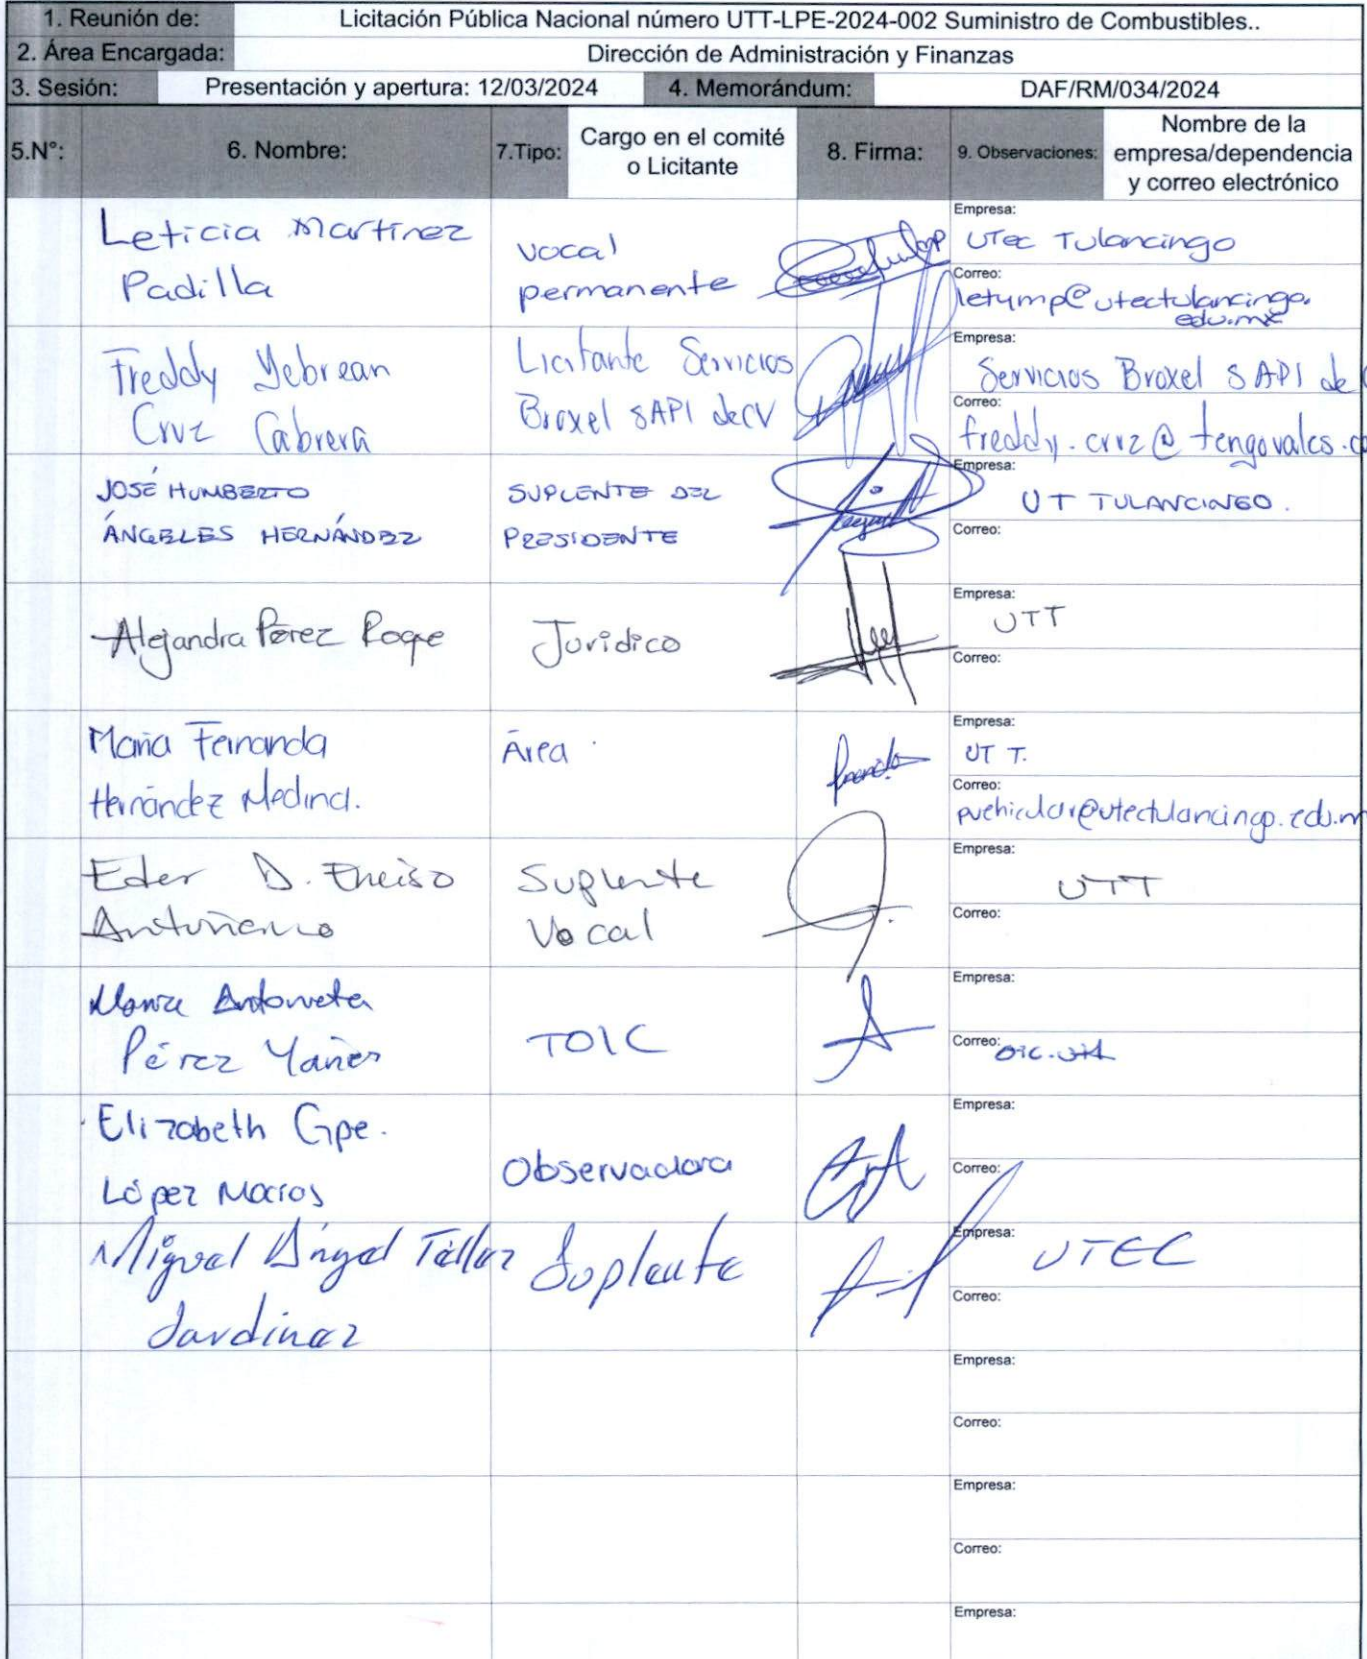 1. Reunión de: Licitación Pública Nacional número UTT-LPE-2024-002 Suministro de Combustibles..
2. Área Encargada: Dirección de Administración y Finanzas
3. Sesión: Presentación y apertura: 12/03/2024 4. Memorándum: DAF/RM/034/2024
5.N°: 6. Nombre: 7.Tipo: Cargo en el comité o Licitante 8. Firma: 9. Observaciones: Nombre de la empresa/dependencia y correo electrónico
Leticia Martínez
Padilla
vocal
permanente
Empresa:
UTec Tulancingo
Correo:
letymp@utectulancingo.
edu.mx
Freddy Yebrean
Cruz Cabrera
Licitante Servicios
Broxel SAPI de CV
Empresa:
Servicios Broxel SAPI de
Correo:
freddy.cruz@tengovales.co
JOSÉ HUMBERTO
ÁNGELES HERNÁNDEZ
SUPLENTE DEL
PRESIDENTE
Empresa:
UT TULANCINGO.
Correo:
Alejandra Pérez Roque
Jurídico
Empresa:
UTT
Correo:
María Fernanda
Hernández Medina.
Área
Empresa:
UT T.
Correo:
pvehicular@utectulancingo.edu.m
Eder D. Enciso
Suplente
Vocal
Empresa:
UTT
Correo:
María Antonieta
Pérez Yañez
TOIC
Empresa:
Correo:
oic.utt
Elizabeth Gpe.
López Macías
Observadora
Empresa:
Correo:
Miguel Ángel Téllez
Jardínez
Suplente
Empresa:
UTEC
Correo:
Empresa:
Correo:
Empresa:
Correo:
Empresa: